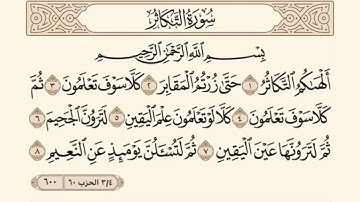 سُورَةُ التَّكَاثُرِ
بِسْمِ ٱللَّهِ ٱلرَّحْمَٰنِ ٱلرَّحِيمِ
أَلْهَىٰكُمُ ٱلتَّكَاثُرُ ١ حَتَّىٰ زُرْتُمُ ٱلْمَقَابِرَ ٢ كَلَّا سَوْفَ تَعْلَمُونَ ٣ ثُمَّ
كَلَّا سَوْفَ تَعْلَمُونَ ٤ كَلَّا لَوْ تَعْلَمُونَ عِلْمَ ٱلْيَقِينِ ٥ لَتَرَوُنَّ ٱلْجَحِيمَ ٦
ثُمَّ لَتَرَوُنَّهَا عَيْنَ ٱلْيَقِينِ ٧ ثُمَّ لَتُسْـَٔلُنَّ يَوْمَئِذٍ عَنِ ٱلنَّعِيمِ ٨
٣/٤ الحزب ٦٠ ٦٠٠